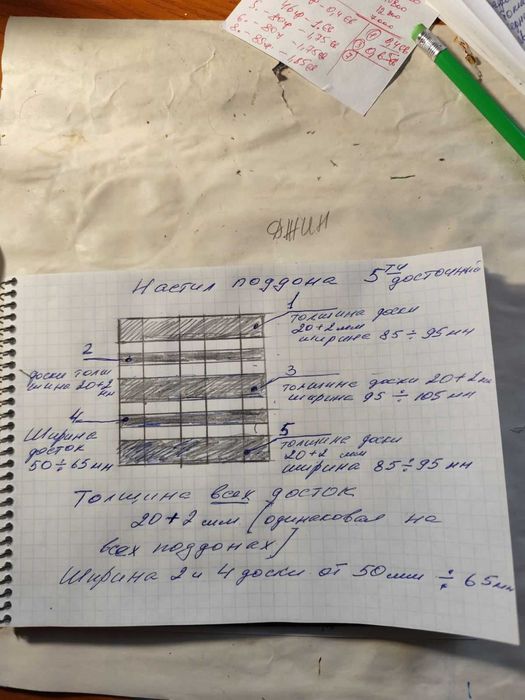 12 200
7000
46гр - 1.св
6. - 80гр - 1,75св
8. - 85гр - 1,85св
ДЖИН
Настил поддона 5ти досточный
1
толщина доски
20+2мм
ширина 85÷95мм
2
доски толщ
шина 20+2
мм
3
толщина доски 20+2мм
ширина 95÷105мм
4
Ширина
досток
50÷65мм
5
толщина доски
20+2 мм
ширина 85÷95 мм
Толщина всех досток
20+2мм [одинаковая на
всех поддонах]
Ширина 2 и 4 доски от 50мм ÷ 65мм